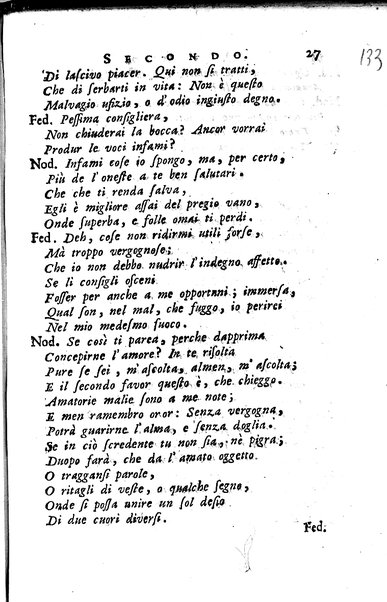 SECONDO. 27
133
Di lascivo piacer. Qui non si tratti,
Che di serbarti in vita: Non è questo
Malvagio ufizio, o d'odio ingiusto degno.
Fed. Pessima consigliera,
Non chiuderai la bocca? Ancor vorrai
Produr le voci infami?
Nod. Infami cose io spongo, ma, per certo,
Più de l'oneste a te ben salutari.
Che che ti renda salva,
Egli è migliore assai del pregio vano,
Onde superba, e folle omai ti perdi.
Fed. Deh, cose non ridirmi utili forse,
Mà troppo vergognose;
Che io non debbo nudrir l'indegno affetto.
Se li consigli osceni
Fosser per anche a me opportuni; immersa,
Qual son, nel mal, che fuggo, io perirei
Nel mio medesmo fuoco.
Nod. Se così ti parea, perche dapprima
Concepirne l'amore? In te risolta
Pure se sei, m'ascolta, almen, m'ascolta;
E il secondo favor questo è, che chieggo.
Amatorie malie sono a me note;
E men ramembro oror: Senza vergogna,
Potrà guarirne l'alma, e senza doglia.
Se in ciò scredente tu non sia, nè pigra;
Duopo farà, che da l'amato oggetto.
O traggansi parole,
O ritagli di veste, o qualche segno,
Onde si possa unire un sol desio
Di due cuori diversi.
Fed.